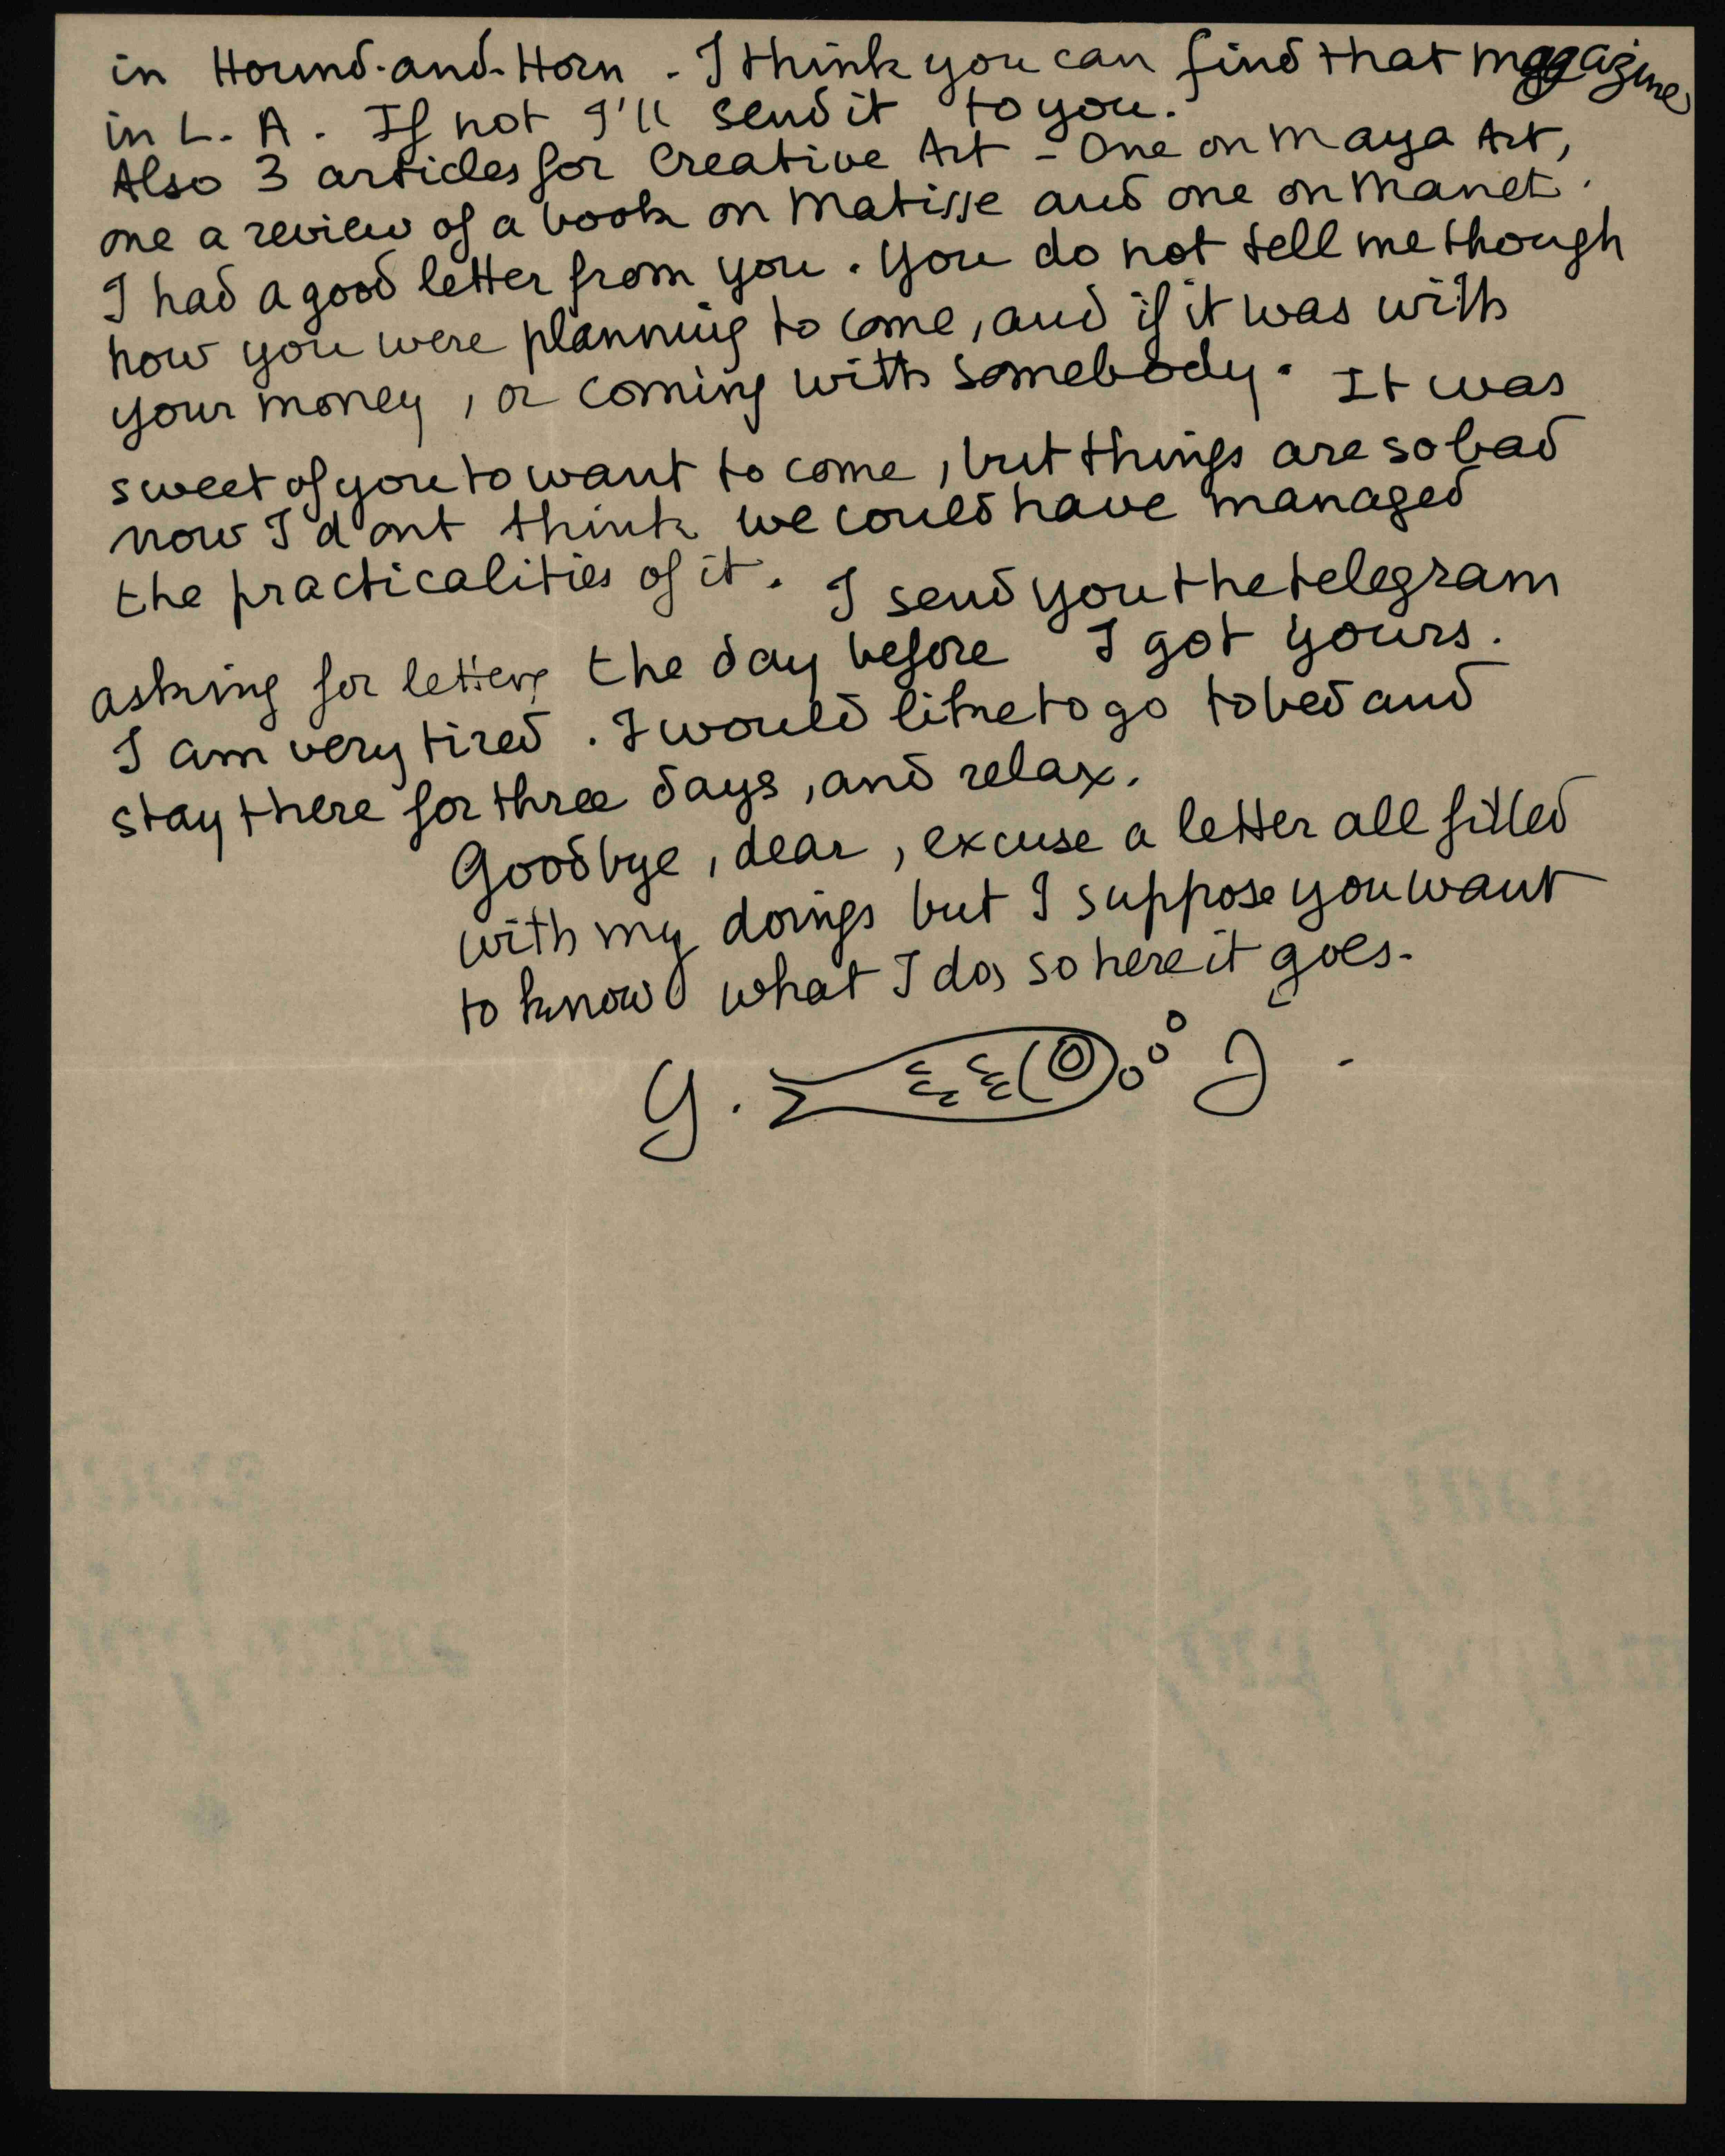 in Hound-and-Horn - I think you can find that magazine
in L. A. If not I'll send it to you.
Also 3 articles for Creative Art - One on Maya Art,
one a review of a book on Matisse and one on Manet.
I had a good letter from you. You do not tell me though
how you were planning to come, and if it was with
your money, or coming with somebody. It was
sweet of you to want to come, but things are so bad
now I dont think we could have managed
the practicalities of it. I send you the telegram
asking for letters the day before I got yours.
I am very tired. I would like to go to bed and
stay there for three days, and relax.
Goodbye, dear, excuse a letter all filled
with my doings but I suppose you want
to know what I do, so here it goes.
Y. J -